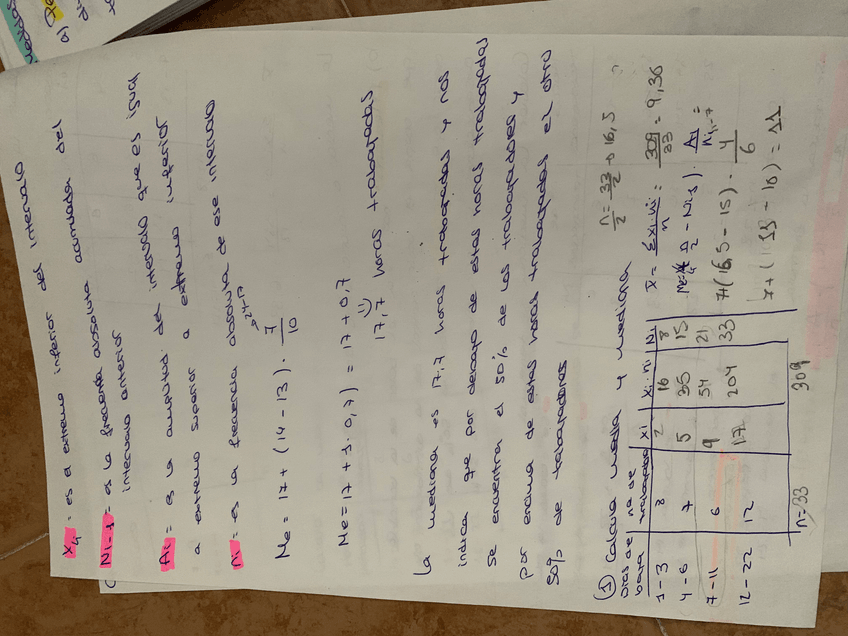 xi = es el extremo inferior del intervalo
Ni-1 = es la frecuencia absoluta acumulada del
intervalo anterior
Ai = es la amplitud del intervalo que es igual
a extremo superior a extremo inferior
ni = es la frecuencia absoluta de ese intervalo
= 24-17
Me = 17 + (14 - 13) · 7/10
Me = 17 + 1 · 0,7) = 17 + 0,7
17,7 horas trabajadas
La mediana es 17,7 horas trabajadas y nos
indica que por debajo de estas horas trabajadas
se encuentra el 50% de los trabajadores y
por encima de estas horas trabajadas el otro
50% de trabajadores
① Calcula media y mediana
n/2 = 33/2 → 16,5
Dias de baja | nº de trabajadores | xi | xi · ni | Ni
1-3 | 8 | 2 | 16 | 8
4-6 | 7 | 5 | 35 | 15
7-11 | 6 | 9 | 54 | 21
12-22 | 12 | 17 | 204 | 33
n=33 309
x̄ = Σxi·ni / n = 309/33 = 9,36
7+(16,5 - 15) · 4/6